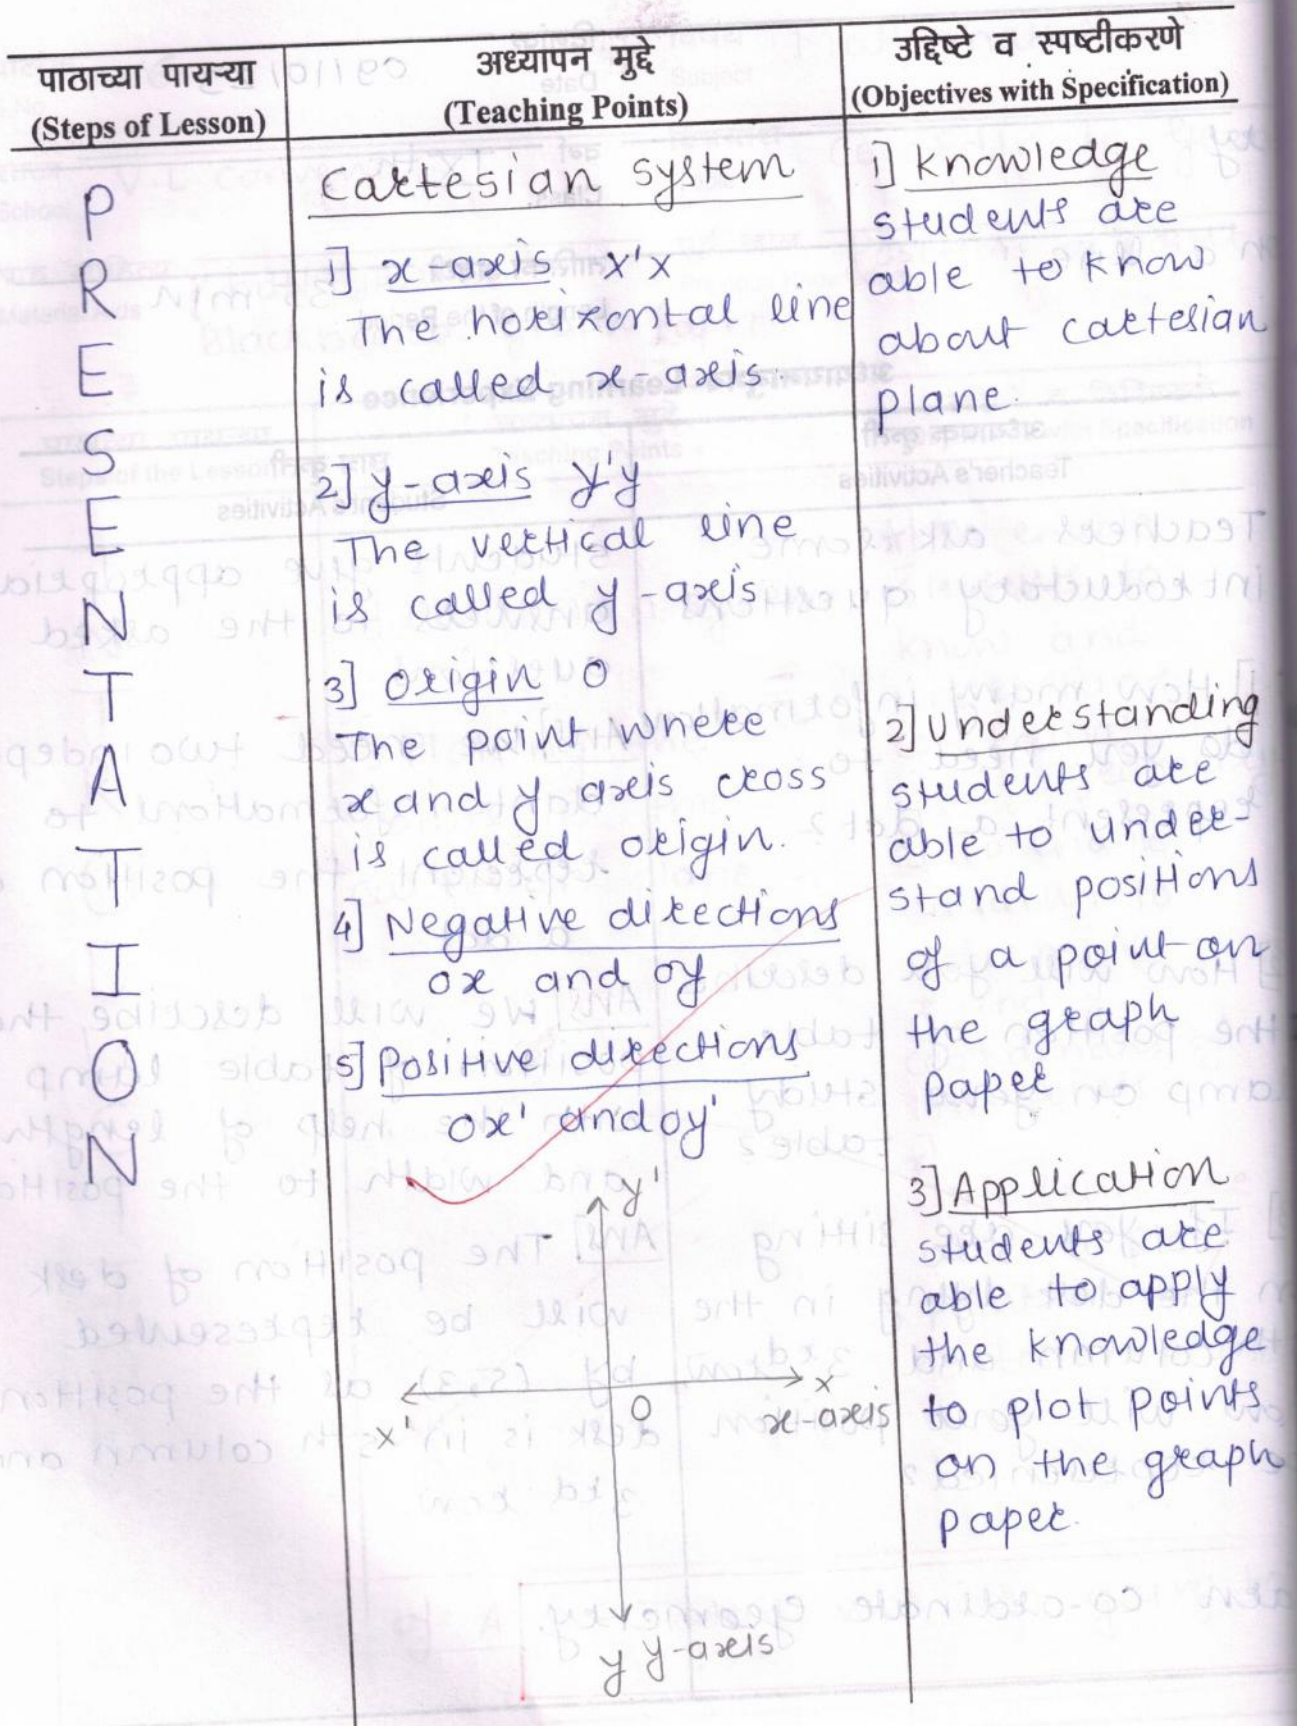 पाठाच्या पायऱ्या
(Steps of Lesson)
अध्यापन मुद्दे
(Teaching Points)
उद्दिष्टे व स्पष्टीकरणे
(Objectives with Specification)
PRESENTATION
Cartesian system
1] x axis x'x
The horizontal line
is called x-axis.
2] y-axis y'y
The vertical line
is called y-axis
3] Origin O
The point where
x and y axis cross
is called origin.
4] Negative directions
ox and oy
5] Positive directions
ox' and oy'
y'
x
O
x-axis
x'
y y-axis
1] Knowledge
students are
able to know
about cartesian
plane.
2] Understanding
students are
able to under-
stand positions
of a point on
the graph
paper
3] Application
students are
able to apply
the knowledge
to plot points
on the graph
paper.